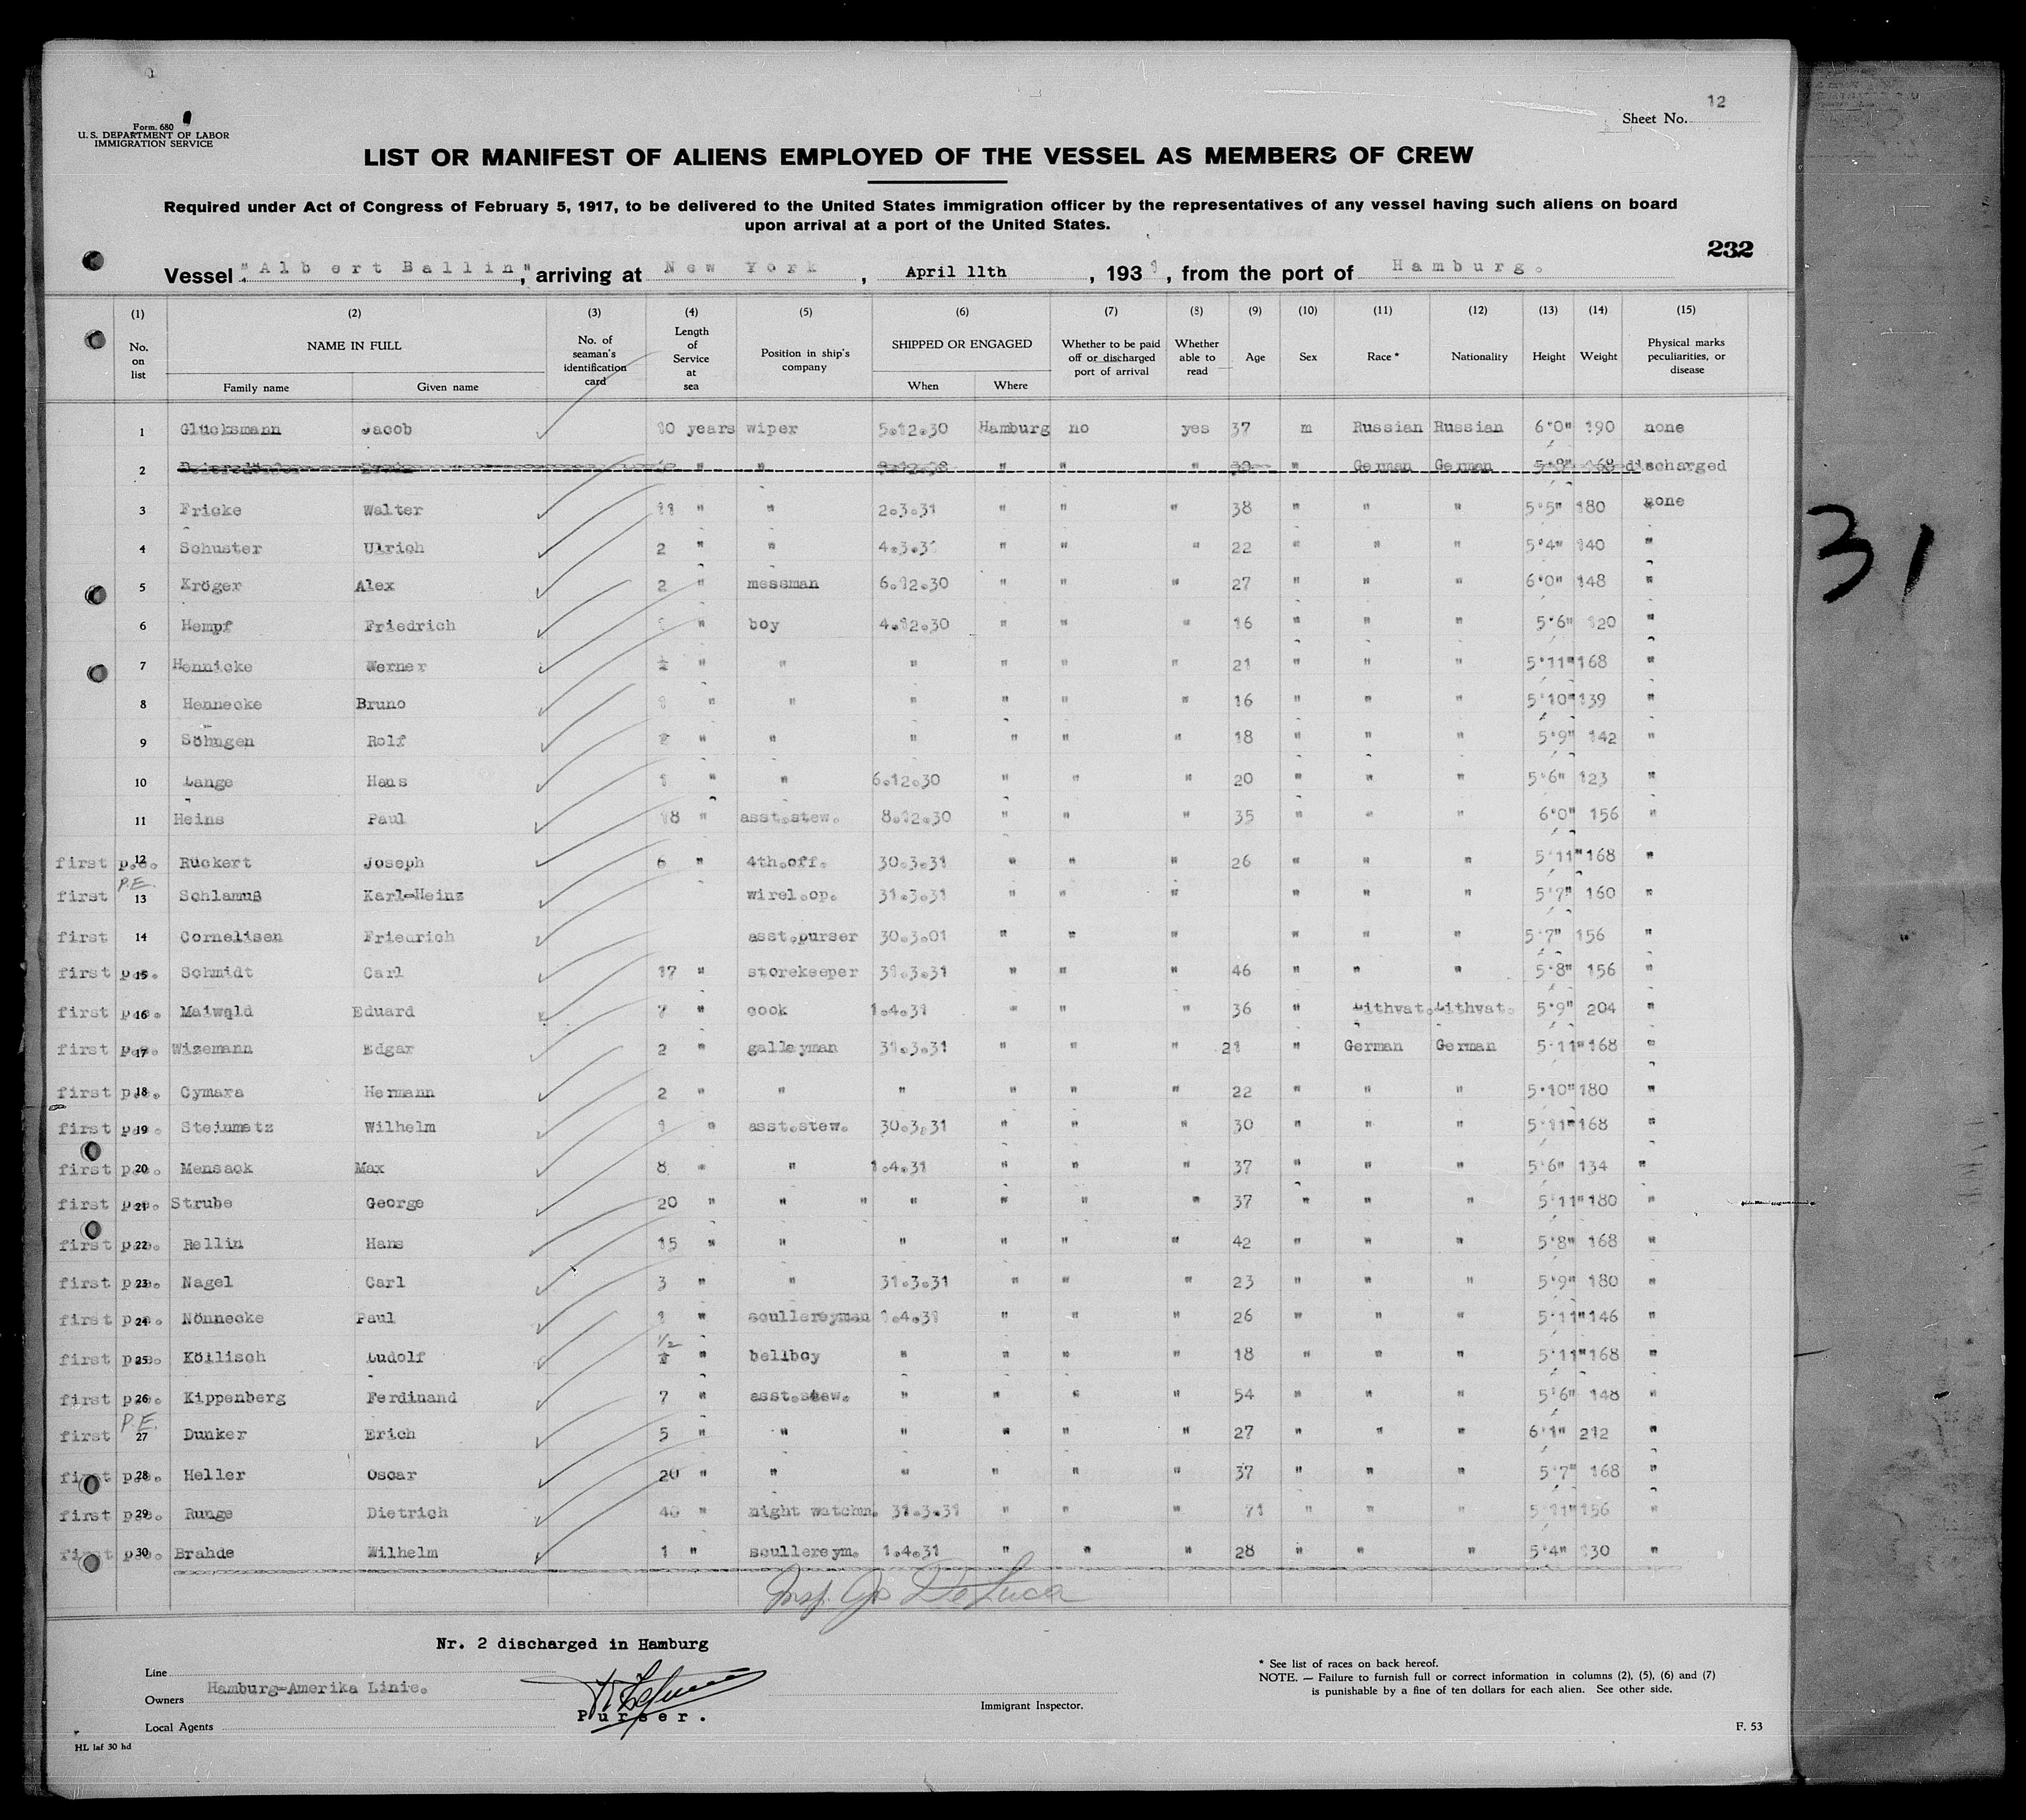 12
Form. 680
U. S. DEPARTMENT OF LABOR
IMMIGRATION SERVICE
Sheet No.
LIST OR MANIFEST OF ALIENS EMPLOYED OF THE VESSEL AS MEMBERS OF CREW
Required under Act of Congress of February 5, 1917, to be delivered to the United States immigration officer by the representatives of any vessel having such aliens on board
upon arrival at a port of the United States.
232
Vessel "Albert Ballin", arriving at New York, April 11th, 1931, from the port of Hamburg.
(1) (2) (3) (4) (5) (6) (7) (8) (9) (10) (11) (12) (13) (14) (15)
No. on list
NAME IN FULL
Family name Given name
No. of seaman's identification card
Length of Service at sea
Position in ship's company
SHIPPED OR ENGAGED
When Where
Whether to be paid off or discharged port of arrival
Whether able to read
Age
Sex
Race *
Nationality
Height
Weight
Physical marks peculiarities, or disease
1 Glücksmann Jacob 10 years wiper 5.12.30 Hamburg no yes 37 m Russian Russian 6'0" 190 none
2 " " " " " " German German 5'8" 168 discharged
3 Fricke Walter 11 " " 2.3.31 " " " 38 " " " 5'5" 180 none
4 Schuster Ulrich 2 " " 4.3.31 " " " 22 " " " 5'4" 140 "
5 Kröger Alex 2 " messman 6.12.30 " " " 27 " " " 6'0" 148 "
6 Hempf Friedrich 1 " boy 4.12.30 " " " 16 " " " 5'6" 120 "
7 Hennicke Werner ½ " " " " " " 21 " " " 5'11" 168 "
8 Hennecke Bruno 1 " " " " " " 16 " " " 5'10" 139 "
9 Söhngen Rolf " " " " " " 18 " " " 5'9" 142 "
10 Lange Hans 1 " " 6.12.30 " " " 20 " " " 5'6" 123 "
11 Heins Paul 18 " asst.stew. 8.12.30 " " " 35 " " " 6'0" 156 "
first p.e. 12 Rückert Joseph 6 " 4th.off. 30.3.31 " " " 26 " " " 5'11" 168 "
first P.E. 13 Schlamuß Karl-Heinz wirel.op. 31.3.31 " " " " " " 5'7" 160 "
first 14 Cornelisen Friedrich asst.purser 30.3.01 " " " " " " 5'7" 156 "
first p.e. 15 Schmidt Carl 17 " storekeeper 31.3.31 " " " 46 " " " 5'8" 156 "
first p.e. 16 Maiwald Eduard 7 " cook 1.4.31 " " " 36 " Lithvat. Lithvat. 5'9" 204 "
first p.e. 17 Wizemann Edgar 2 " galleyman 31.3.31 " " " 21 " German German 5'11" 168 "
first p.e. 18 Cymara Hermann 2 " " " " " " 22 " " " 5'10" 180 "
first p.e. 19 Steinmetz Wilhelm 1 " asst.stew. 30.3.31 " " " 30 " " " 5'11" 168 "
first p.e. 20 Mensack Max 8 " " 1.4.31 " " " 37 " " " 5'6" 134 "
first p.e. 21 Strube George 20 " " " " " " " 37 " " " 5'11" 180 "
first p.e. 22 Rellin Hans 15 " " " " " " 42 " " " 5'8" 168 "
first p.e. 23 Nagel Carl 3 " " 31.3.31 " " " 23 " " " 5'9" 180 "
first p.e. 24 Nönnecke Paul 1 " scullereyman 1.4.31 " " " 26 " " " 5'11" 146 "
first p.e. 25 Köllisch Ludolf 1/2 " bellboy " " " " 18 " " " 5'11" 168 "
first p.e. 26 Kippenberg Ferdinand 7 " asst.stew. " " " " 54 " " " 5'6" 148 "
first P.E. 27 Dunker Erich 5 " " " " " " 27 " " " 6'1" 212 "
first p.e. 28 Heller Oscar 20 " " " " " " 37 " " " 5'7" 168 "
first p.e. 29 Runge Dietrich 40 " night watchm. 31.3.31 " " " 71 " " " 5'11" 156 "
first p.e. 30 Brahde Wilhelm 1 " scullereym. 1.4.31 " " " 28 " " " 5'4" 130 "
Insp. Jo DeLuca
Nr. 2 discharged in Hamburg
Line
Owners Hamburg-Amerika Linie.
Local Agents
Purser.
Immigrant Inspector.
* See list of races on back hereof.
NOTE. — Failure to furnish full or correct information in columns (2), (5), (6) and (7)
is punishable by a fine of ten dollars for each alien. See other side.
F. 53
HL laf 30 hd
31